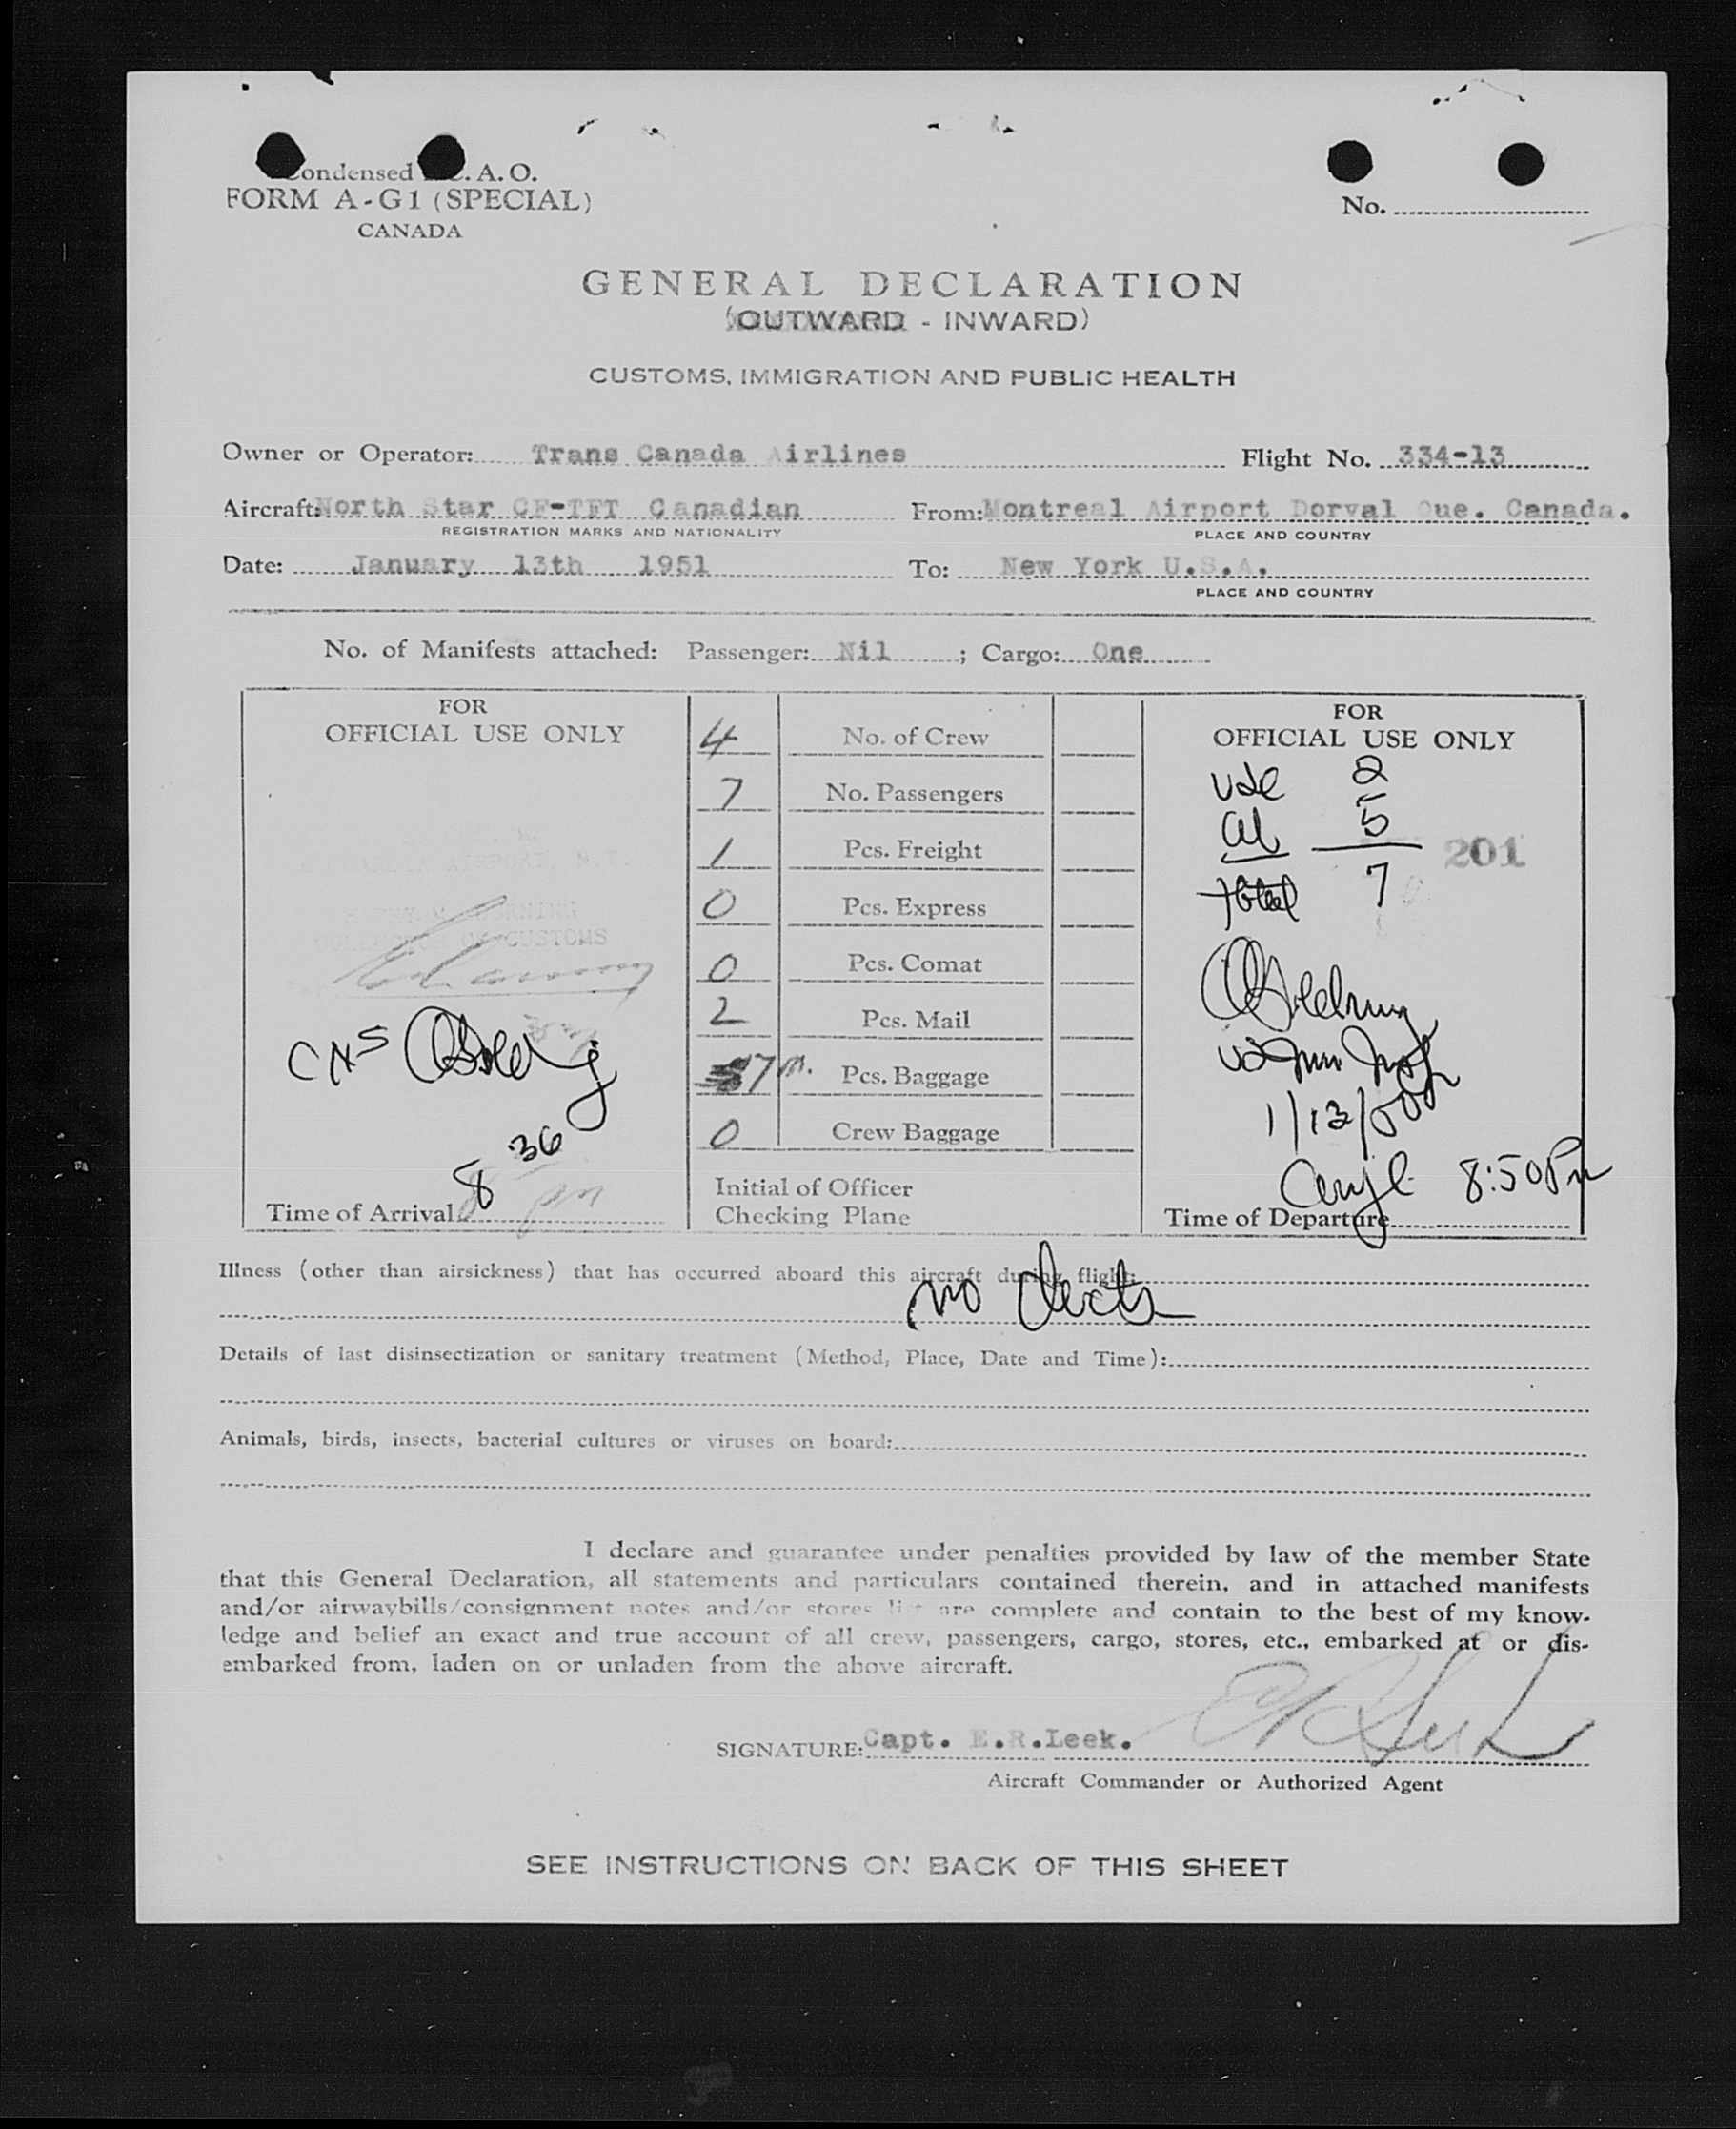 Condensed I.C.A.O.
FORM A-G1 (SPECIAL)
CANADA
No.
GENERAL DECLARATION
(OUTWARD - INWARD)
CUSTOMS, IMMIGRATION AND PUBLIC HEALTH
Owner or Operator: Trans Canada Airlines Flight No. 334-13
Aircraft: North Star CF-TFT Canadian From: Montreal Airport Dorval Que. Canada.
REGISTRATION MARKS AND NATIONALITY PLACE AND COUNTRY
Date: January 13th 1951 To: New York U.S.A.
PLACE AND COUNTRY
No. of Manifests attached: Passenger: Nil ; Cargo: One
FOR
OFFICIAL USE ONLY
COLLECTOR OF CUSTOMS
8 36
pm
Time of Arrival
4 No. of Crew
7 No. Passengers
1 Pcs. Freight
0 Pcs. Express
0 Pcs. Comat
2 Pcs. Mail
7 Pcs. Baggage
0 Crew Baggage
Initial of Officer
Checking Plane
FOR
OFFICIAL USE ONLY
2
al 5
201
total 7
8:50 Pm
Time of Departure
Illness (other than airsickness) that has occurred aboard this aircraft during flight:
no
Details of last disinsectization or sanitary treatment (Method, Place, Date and Time):
Animals, birds, insects, bacterial cultures or viruses on board:
I declare and guarantee under penalties provided by law of the member State
that this General Declaration, all statements and particulars contained therein, and in attached manifests
and/or airwaybills/consignment notes and/or stores list are complete and contain to the best of my know-
ledge and belief an exact and true account of all crew, passengers, cargo, stores, etc., embarked at or dis-
embarked from, laden on or unladen from the above aircraft.
SIGNATURE: Capt. E.R.Leek. ER Leek
Aircraft Commander or Authorized Agent
SEE INSTRUCTIONS ON BACK OF THIS SHEET